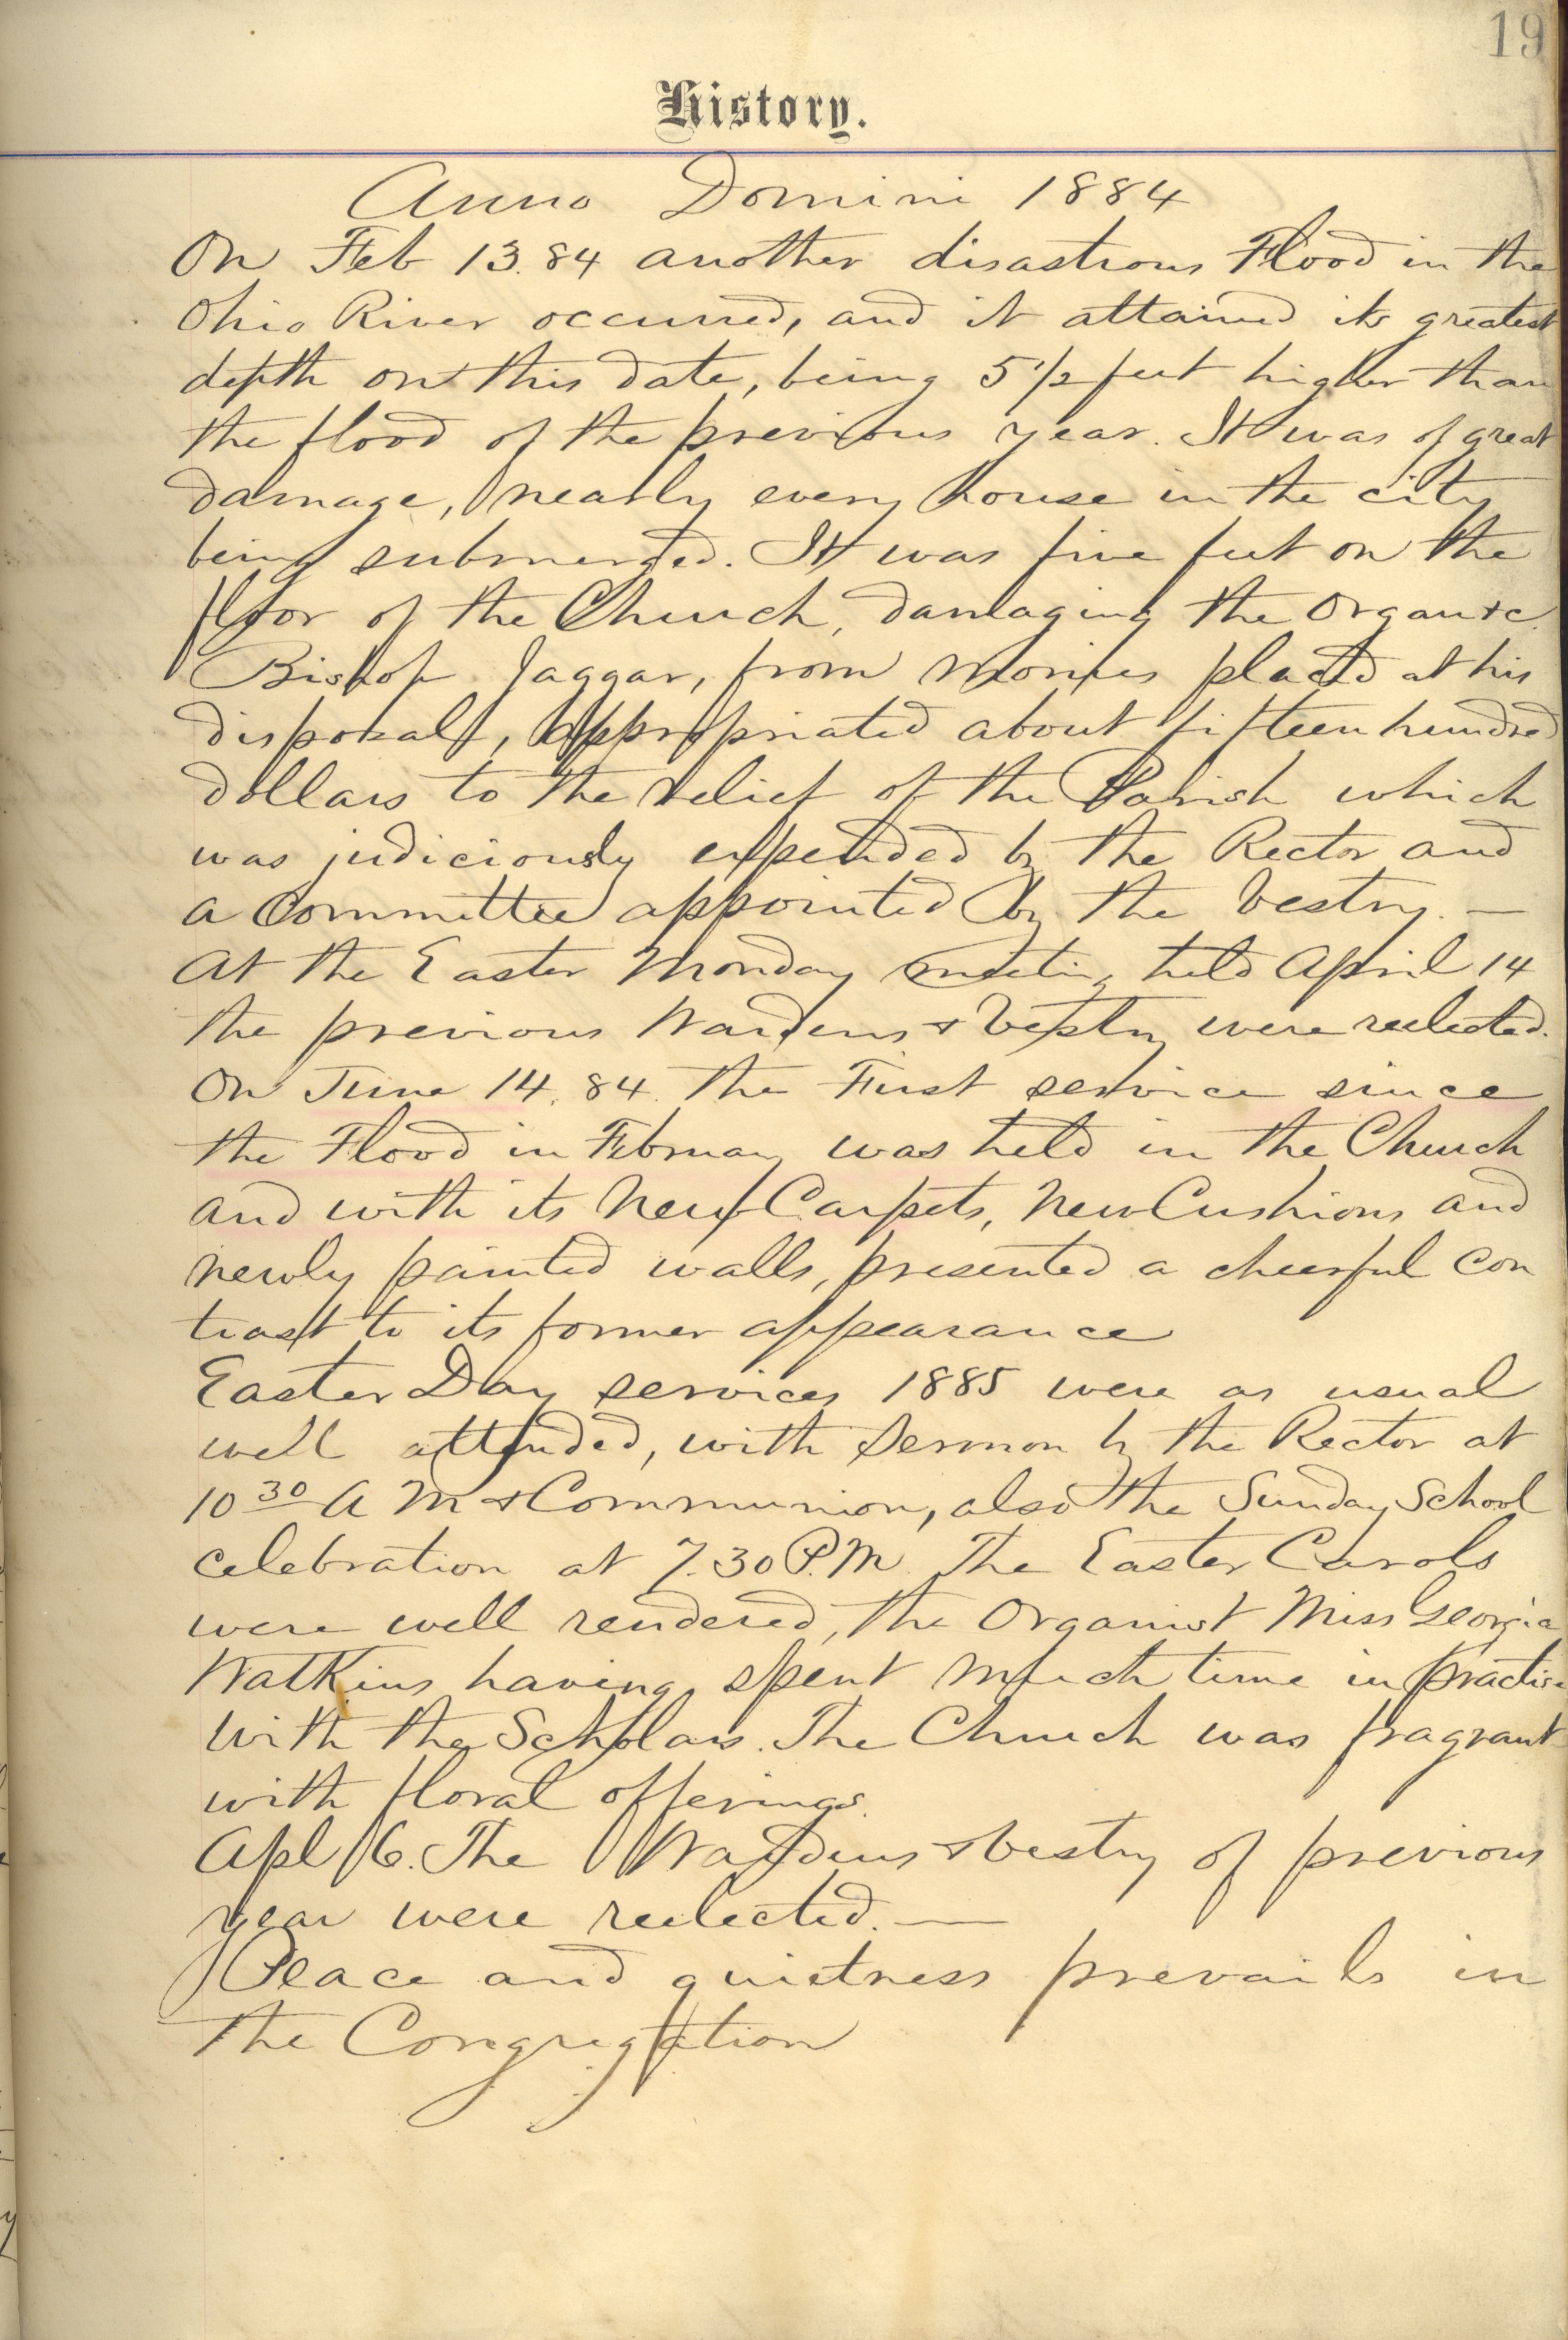 19
History.
Anno Domini 1884
On Feb 13.84 another disastrous Flood in the
Ohio River occurred, and it attained its greatest
depth on this date, being 5 1/2 feet higher than
the flood of the previous year. It was of great
damage, nearly every house in the city
being submerged. It was five feet on the
floor of the Church, damaging the Organ &c.
Bishop Jaggar, from monies placed at his
disposal, appropriated about fifteen hundred
dollars to the relief of the Parish which
was judiciously expended by the Rector and
a Committee appointed by the Vestry. —
At the Easter Monday meeting held April 14
the previous Wardens & Vestry were reelected.
On June 14. 84. the First service since
the Flood in February was held in the Church
and with its New Carpets, New Cushions and
newly painted walls, presented a cheerful con
trast to its former appearance
Easter Day services 1885 were as usual
well attended, with Sermon by the Rector at
10 30 A M & Communion, also the Sunday School
celebration at 7.30 P.M. The Easter Carols
were well rendered, the Organist Miss Georgia
Watkins having spent much time in practice
with the Scholars. The Church was fragrant
with floral offerings.
Apl 6. The Wardens & Vestry of previous
year were reelected. —
Peace and quietness prevails in
the Congregation